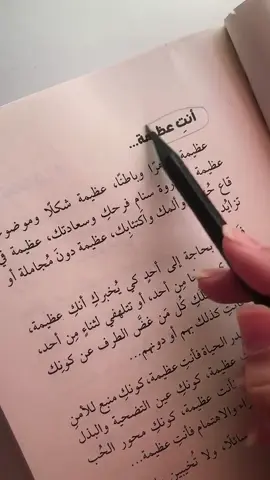 أنتِ عظيمة...
عظيمة وباطنًا، عظيمة شكلًا
عظيمة سنام فرحكِ وسعادتك، عظيمة في
قاع وألمك واكتئابك، عظيمة دون مُجاملة أو
تزايُد
بحاجة إلى أحدٍ كي يُخبركِ أنكِ عظيمة،
من أحد، أو تتلهفي لثناءٍ من أحد،
كُل مَن غضَّ الطرف عن كونكِ
كذلك بهم أو دونهم...
الحياة فأنتِ عظيمة، كونكِ منبع للأمنِ
عظيمة، كونكِ عين التضحية والبذل
فأنتِ عظيمة، كونك محور الحُب
والاهتمام فأنتِ عظيمة...
ولا